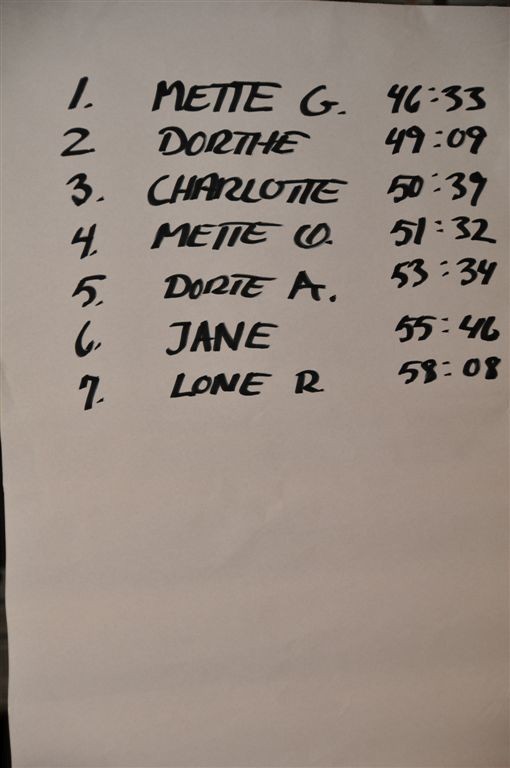 1. METTE G. 46:33
2 DORTHE 49:09
3. CHARLOTTE 50:39
4. METTE Ø. 51:32
5. DORTE A. 53:34
6. JANE 55:46
7. LONE R 58:08